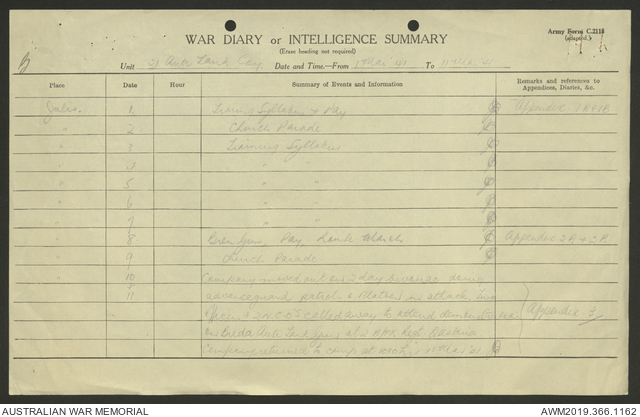 Army Form C.2118
(adapted.)
WAR DIARY or INTELLIGENCE SUMMARY
(Erase heading not required)
Unit 21 Anti Tank Coy. Date and Time:—From 1 Mar '41 To 11 Mar '41
Place Date Hour Summary of Events and Information Remarks and references to Appendices, Diaries, &c.
Julis. 1 Training Syllabus & Pay Appendix 1A & 1B
" 2 Church Parade
" 3 Training Syllabus
" 4 " "
" 5 " "
" 6 " "
" 7 " "
" 8 Bren Guns, Pay, March Appendix 2A & 2B
" 9 Church Parade
" 10 Company moved out on 2 day bivouac doing
" 11 advanceguard patrol & in attack. Two
Officers & 2 N.C.O's called away to attend Appendix 3
on Breda Anti Tank Guns at 2
Company returned to camp at 11 Mar '41
AUSTRALIAN WAR MEMORIAL AWM2019.366.1162